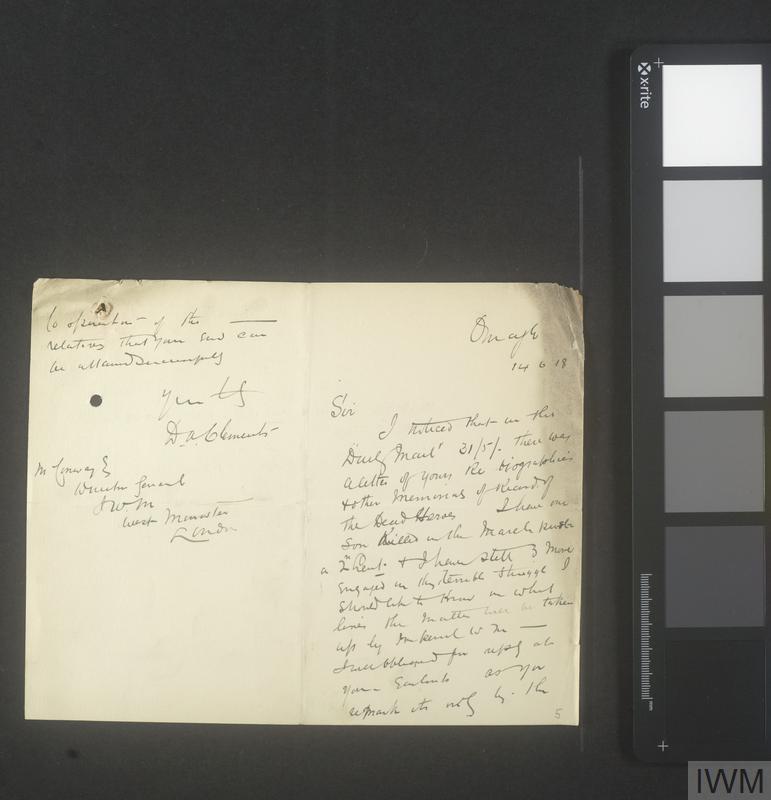 Omagh
14 6 18
Sir
I noticed that in the
Daily Mail 31/5/. there was
a letter of yours Re Biographies
& other Memorials of Record of
the Dead Heroes I have one
son Killed in the March
a 2n Lieut. & I have still 3 more
engaged in this terrible struggle I
should like to Know on what
lines the matter will be taken
up by Imperial W M
I will be obliged for reply at
your Earliest as you
remark its only by the
5
A
Co operation of the
relatives that your end can
be attained successfully
Yours
D. A. Clements
Mr Conway
Director General
I W. M
West Minster
London
x-rite
mm
IWM